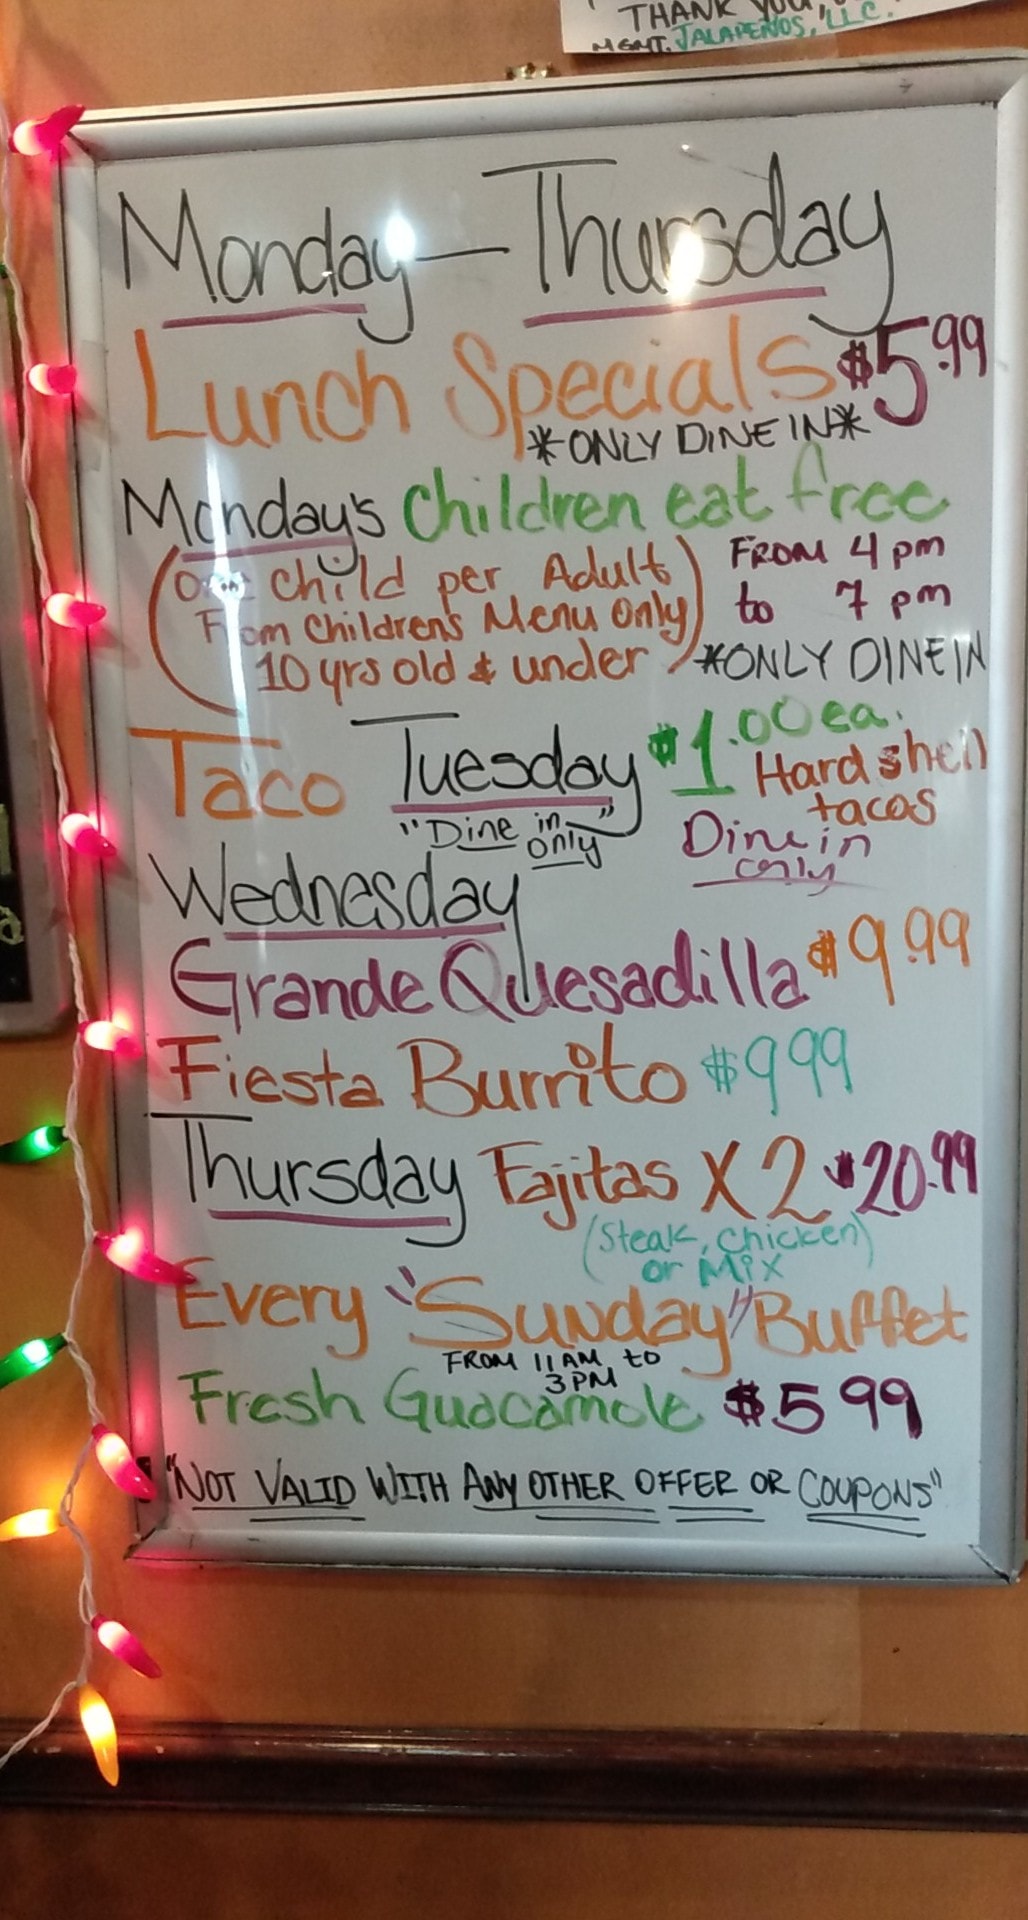 THANK YOU,
MGMT. JALAPEÑOS, LLC.
Monday - Thursday
Lunch Specials $5.99
*ONLY DINE IN*
Monday's Children eat free
(One Child per Adult
From Childrens Menu Only)
10 yrs old & under
FROM 4 pm
to 7 pm
*ONLY DINE IN
Taco Tuesday $1.00 ea.
Hard shell
tacos
"Dine in only"
Dine in
only
Wednesday
Grande Quesadilla $9.99
Fiesta Burrito $9 99
Thursday Fajitas X 2 $20.99
(Steak, chicken)
or Mix
Every "Sunday" Buffet
FROM 11 AM to
3 PM
Fresh Guacamole $5 99
"NOT VALID WITH ANY OTHER OFFER OR COUPONS"